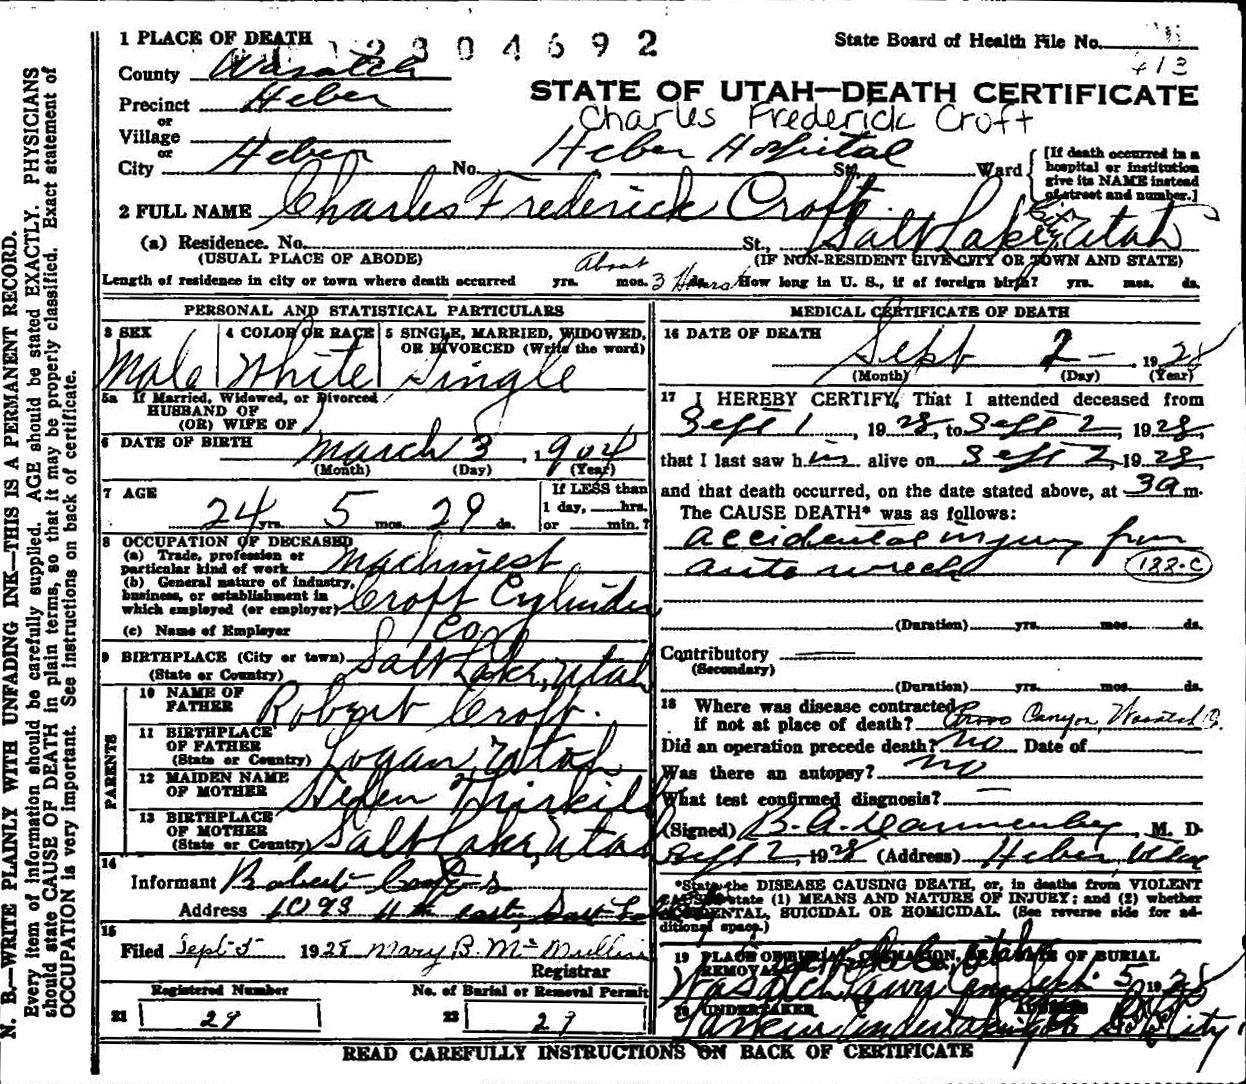 N. B.—WRITE PLAINLY WITH UNFADING INK—THIS IS A PERMANENT RECORD.
Every item of information should be carefully supplied. AGE should be stated EXACTLY. PHYSICIANS
should state CAUSE OF DEATH in plain terms, so that it may be properly classified. Exact statement of
OCCUPATION is very important. See instructions on back of certificate.
1 PLACE OF DEATH
2304692
State Board of Health File No.
413
County Wasatch
STATE OF UTAH—DEATH CERTIFICATE
Precinct Heber
or
Village
Charles Frederick Croft
or
City Heber No. Heber Hospital St., Ward
[If death occurred in a
hospital or institution
give its NAME instead
of street and number.]
2 FULL NAME Charles Frederick Croft.
(a) Residence. No. St., Salt Lake City Utah
(USUAL PLACE OF ABODE) (IF NON-RESIDENT GIVE CITY OR TOWN AND STATE)
Length of residence in city or town where death occurred yrs. About mos. 3 Hours ds. How long in U. S., if of foreign birth? yrs. mos. ds.
PERSONAL AND STATISTICAL PARTICULARS
3 SEX
Male
4 COLOR OR RACE
White
5 SINGLE, MARRIED, WIDOWED,
OR DIVORCED (Write the word)
Single
5a If Married, Widowed, or Divorced
HUSBAND OF
(OR) WIFE OF
6 DATE OF BIRTH March 3, 1904
(Month) (Day) (Year)
7 AGE
24 yrs. 5 mos. 29 ds.
If LESS than
1 day, hrs.
or min.?
8 OCCUPATION OF DECEASED
(a) Trade, profession or
particular kind of work Machinest
(b) General nature of industry,
business, or establishment in
which employed (or employer) Croft Cylinder
(c) Name of Employer Co
9 BIRTHPLACE (City or town)
(State or Country) Salt Lake, Utah
PARENTS
10 NAME OF
FATHER Robert Croft.
11 BIRTHPLACE
OF FATHER
(State or Country) Logan Utah
12 MAIDEN NAME
OF MOTHER Helen Thirkill
13 BIRTHPLACE
OF MOTHER
(State or Country) Salt Lake, Utah
14
Informant Robert
Address 1093 11th east, Salt
15
Filed Sept 5 1928 Mary B. McMullin
Registrar
Registered Number
21 29
No. of Burial or Removal Permit
22 29
MEDICAL CERTIFICATE OF DEATH
16 DATE OF DEATH
Sept 2 - 1928
(Month) (Day) (Year)
17 I HEREBY CERTIFY, That I attended deceased from
Sept 1, 1928, to Sept 2, 1928,
that I last saw him alive on Sept 2, 1928,
and that death occurred, on the date stated above, at 3 a m.
The CAUSE DEATH* was as follows:
accidental injury from
auto wreck 188-c
(Duration) yrs. mos. ds.
Contributory
(Secondary)
(Duration) yrs. mos. ds.
18 Where was disease contracted
if not at place of death? Provo Canyon, Wasatch
Did an operation precede death? no Date of
Was there an autopsy? no
What test confirmed diagnosis?
(Signed) B. A. Dannenberg, M. D.
Sept 2, 1928 (Address) Heber Utah
*State the DISEASE CAUSING DEATH, or, in deaths from VIOLENT
CAUSES state (1) MEANS AND NATURE OF INJURY; and (2) whether
ACCIDENTAL, SUICIDAL OR HOMICIDAL. (See reverse side for ad-
ditional space.)
19 PLACE OF BURIAL, CREMATION, DATE OF BURIAL
REMOVAL
Wasatch Lawn Sept. 5 1928
20 UNDERTAKER
Larkin Undertaking City
READ CAREFULLY INSTRUCTIONS ON BACK OF CERTIFICATE